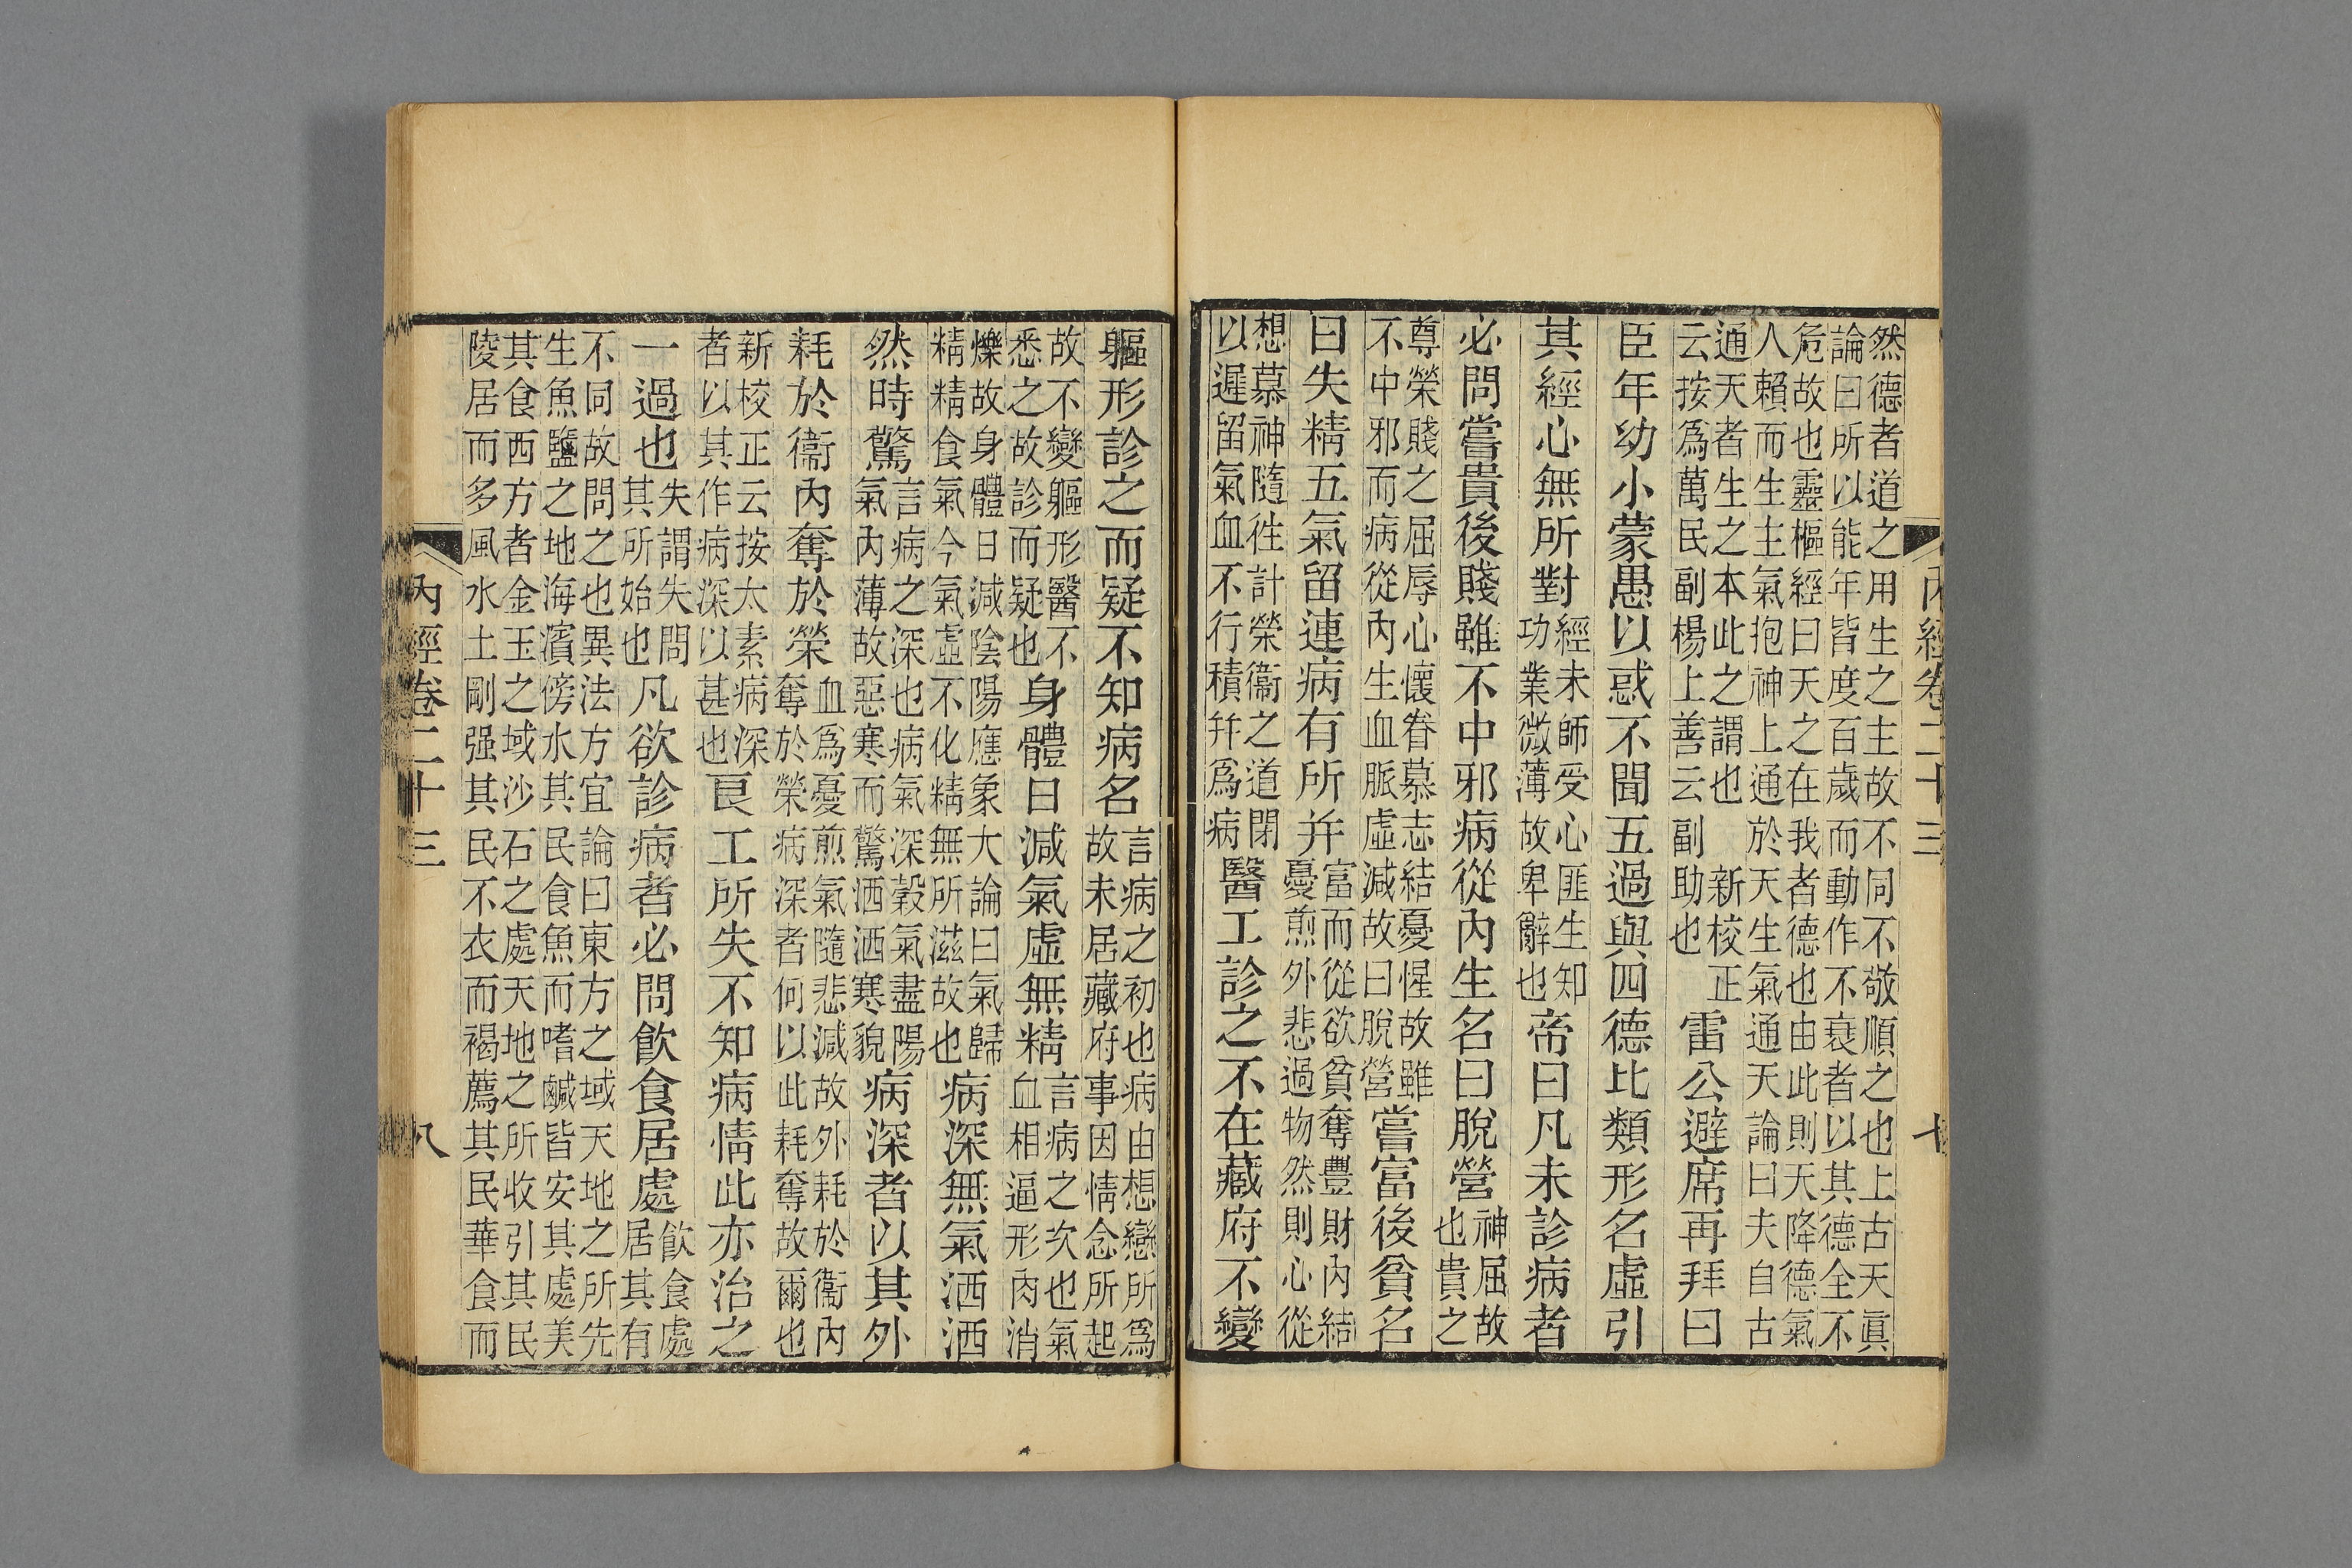 內經卷二十三 七
然德者道之用生之主故不同不敬順之也上古天眞
論曰所以能年皆度百歲而動作不衰者以其德全不
危故也靈樞經曰天之在我者德也由此則天降德氣
人賴而生主氣抱神上通於天生氣通天論曰夫自古
通天者生之本此之謂也 新校正
云按爲萬民副楊上善云副助也
雷公避席再拜曰
臣年幼小蒙愚以惑不聞五過與四德比類形名虛引
其經心無所對
經未師受心匪生知
功業微薄故卑辭也
帝曰凡未診病者
必問嘗貴後賤雖不中邪病從內生名曰脫營
神屈故
也貴之
尊榮賤之屈辱心懷眷慕志結憂惶故雖
不中邪而病從內生血脈虛減故曰脫營
嘗富後貧名
曰失精五氣留連病有所并
富而從欲貧奪豐財內結
憂煎外悲過物然則心從
想慕神隨往計榮衞之道閉
以遲留氣血不行積并爲病
醫工診之不在藏府不變
軀形診之而疑不知病名
言病之初也病由想戀所爲
故未居藏府事因情念所起
故不變軀形醫不
悉之故診而疑也
身體日減氣虛無精
言病之次也氣
血相逼形肉消
爍故身體日減陰陽應象大論曰氣歸
精精食氣今氣虛不化精無所滋故也
病深無氣洒洒
然時驚
言病之深也病氣深穀氣盡陽
氣內薄故惡寒而驚洒洒寒貌
病深者以其外
耗於衞內奪於榮
血爲憂煎氣隨悲減故外耗於衞內
奪於榮病深者何以此耗奪故爾也
新校正云按太素病深
者以其作病深以甚也
良工所失不知病情此亦治之
一過也
失謂失問
其所始也
凡欲診病者必問飲食居處
飲食處
居其有
不同故問之也異法方宜論曰東方之域天地之所先
生魚鹽之地海濱傍水其民食魚而嗜鹹皆安其處美
其食西方者金玉之域沙石之處天地之所收引其民
陵居而多風水土剛强其民不衣而褐薦其民華食而
內經卷二十三 八